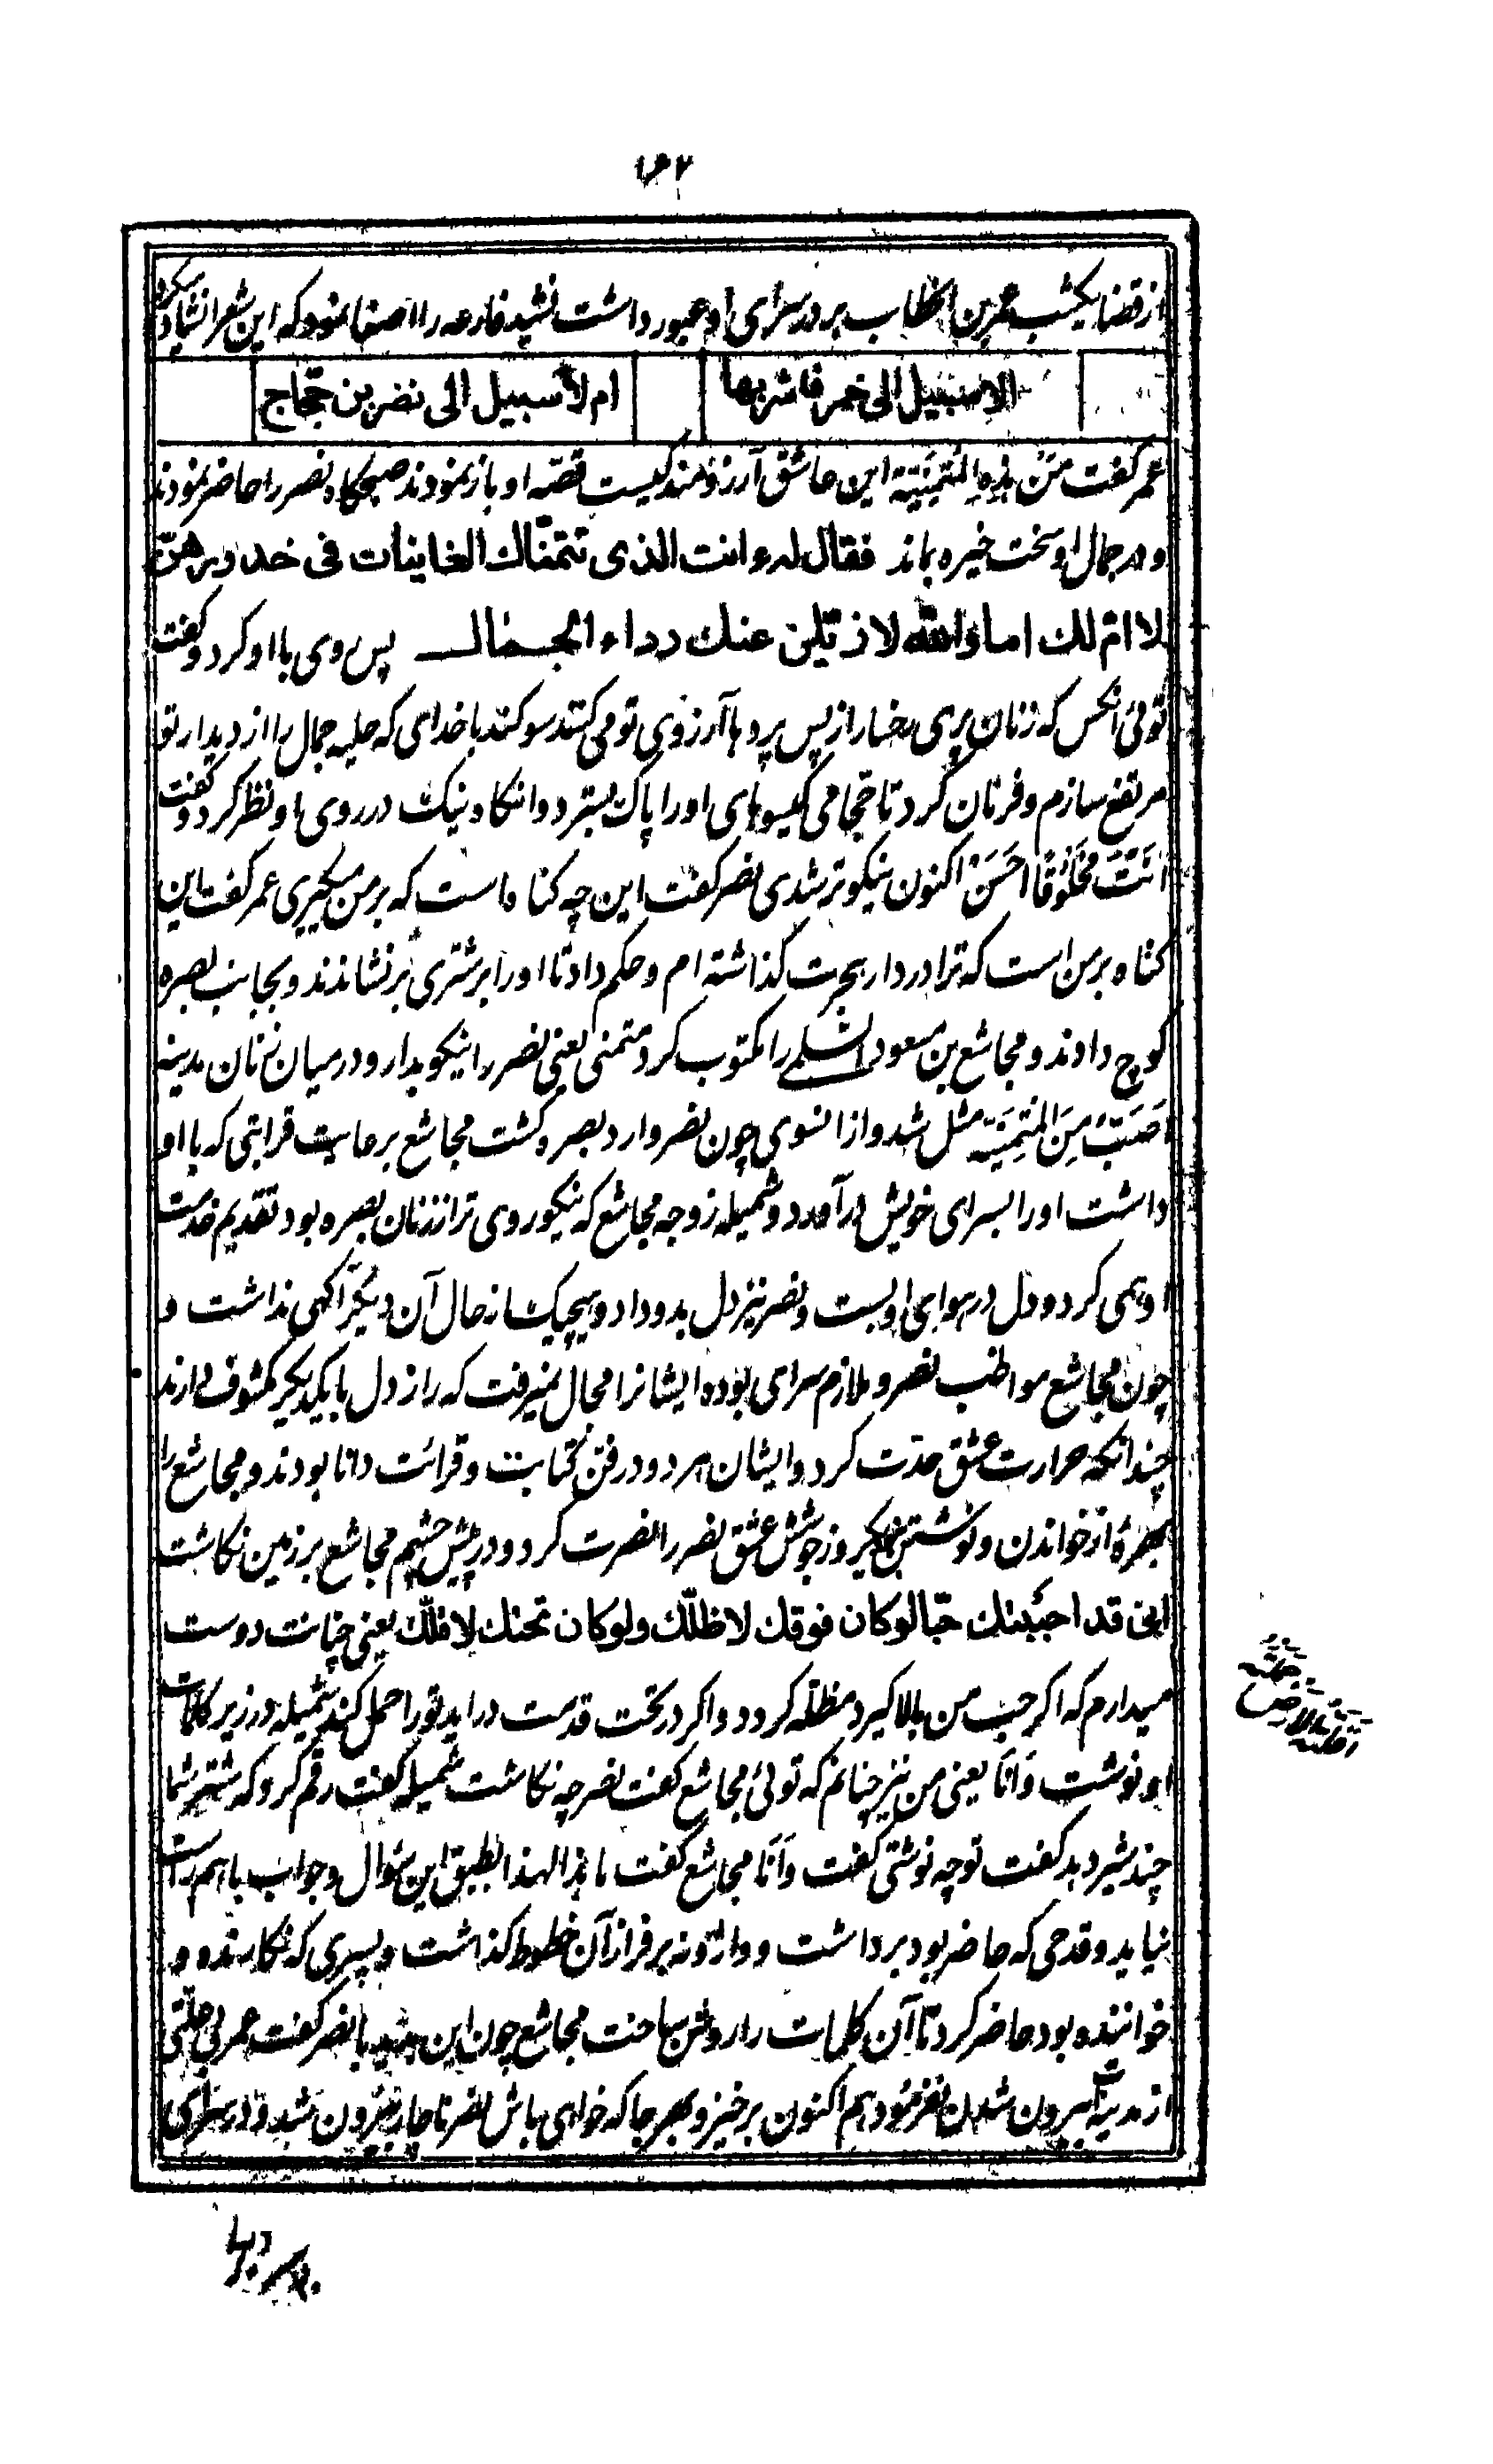 ۱۶۲
از قضا یکشب عمر بن الخطاب بر در سرای او عبور داشت نشید فارعه را اصغا نمود که این شعر انشاد میکرد
الا سبیل الی خمر فاشربها ام لا سبیل الی نضر بن حجّاج
عمر کفت مَنْ هذِهِ المُتَمَنِّیَة این عاشق آرزومند کیست قصّه او باز نمودند صبحکاه نصر را حاضر نمودند
و در جمال او سخت خیره بماند فقال له ءانت الذی تتمنّاك الغانیات فی خدورهنّ
لا امّ لك اما والله لازیلن عنك رداء الجمال پس روی با او کرد و کفت
توئی انکس که زنان پری رخسار از پس پردها آرزوی تو می کنند سوکند با خدای که حلیه جمال را از دیدار تو
مرتفع سازم و فرمان کرد تا حجامی کیسوهای او را پاک بسترد و انکاه نیک در روی او نظر کرد و کفت
اَنْتَ مَحْلُوقًا اَحْسَنُ اکنون نیکوتر شدی نصر کفت این چه کناه است که بر من میکیری عمر کفت این
کناه بر من است که ترا در دار هجرت کذاشته ام و حکم داد تا او را بر شتری بر نشاندند و بجانب بصره
کوچ دادند و مجاشع بن مسعود السّلمے را مکتوب کرد متمنی یعنی نصر را نیکو بدار و در میان زنان مدینه
اَصَبُّ مِنَ المُتَمَنِّیَة مثل شد و از انسوی چون نصر وارد بصره کشت مجاشع برعایت قرابتی که با او
داشت او را بسرای خویش در آورد و شمیله زوجه مجاشع که نیکوروی تر از زنان بصره بود تقدیم خدمت
او همی کرد و دل در هوای او بست و نصر نیز دل بدو داد و هیچیک از حال آن دیکر آکهی نداشت و
چون مجاشع مواظب نصر و ملازم سرای بوده ایشانرا مجال نمیرفت که راز دل با یکدیکر مکشوف دارند
چندانکه حرارت عشق حدّت کرد و ایشان هر دو در فن کتابت و قرائت دانا بودند و مجاشع را
بهرهٔ از خواندن و نوشتن نه یکروز جوشش عشق نصر را نصرت کرد و در پیش چشم مجاشع بر زمین نکاشت
انی قد احببتك حبّا لو کان فوقك لاظلّك ولو کان تحتك لاقلّك یعنی چنانت دوست
میدارم که اکر حبّ من بالا کیرد مظلّه کردد و اکر در تحت قدمت در اید تو را حمل کند شمیله در زیر کلمات
او نوشت وَاَنَا یعنی من نیز چنانم که توئی مجاشع کفت نصر چه نکاشت شمیله کفت رقم کرد که شتر شما
چند شیر دهد کفت تو چه نوشتی کفت وَاَنَا مجاشع کفت ما هذا لهذا بطبق این سؤال و جواب با هم راست
نیاید و قدحی که حاضر بود برداشت و واژونه بر فراز آن خطوط کذاشت و پسری که نکارنده و
خواننده بود حاضر کرد تا آن کلمات را روشن ساخت مجاشع چون این بشنید با نصر کفت عمر بی علّتی
از مدینه ات بیرون شدن نفرمود هم اکنون برخیز و بهر جا که خواهی باش نصر ناچار بیرون شد و در سرای